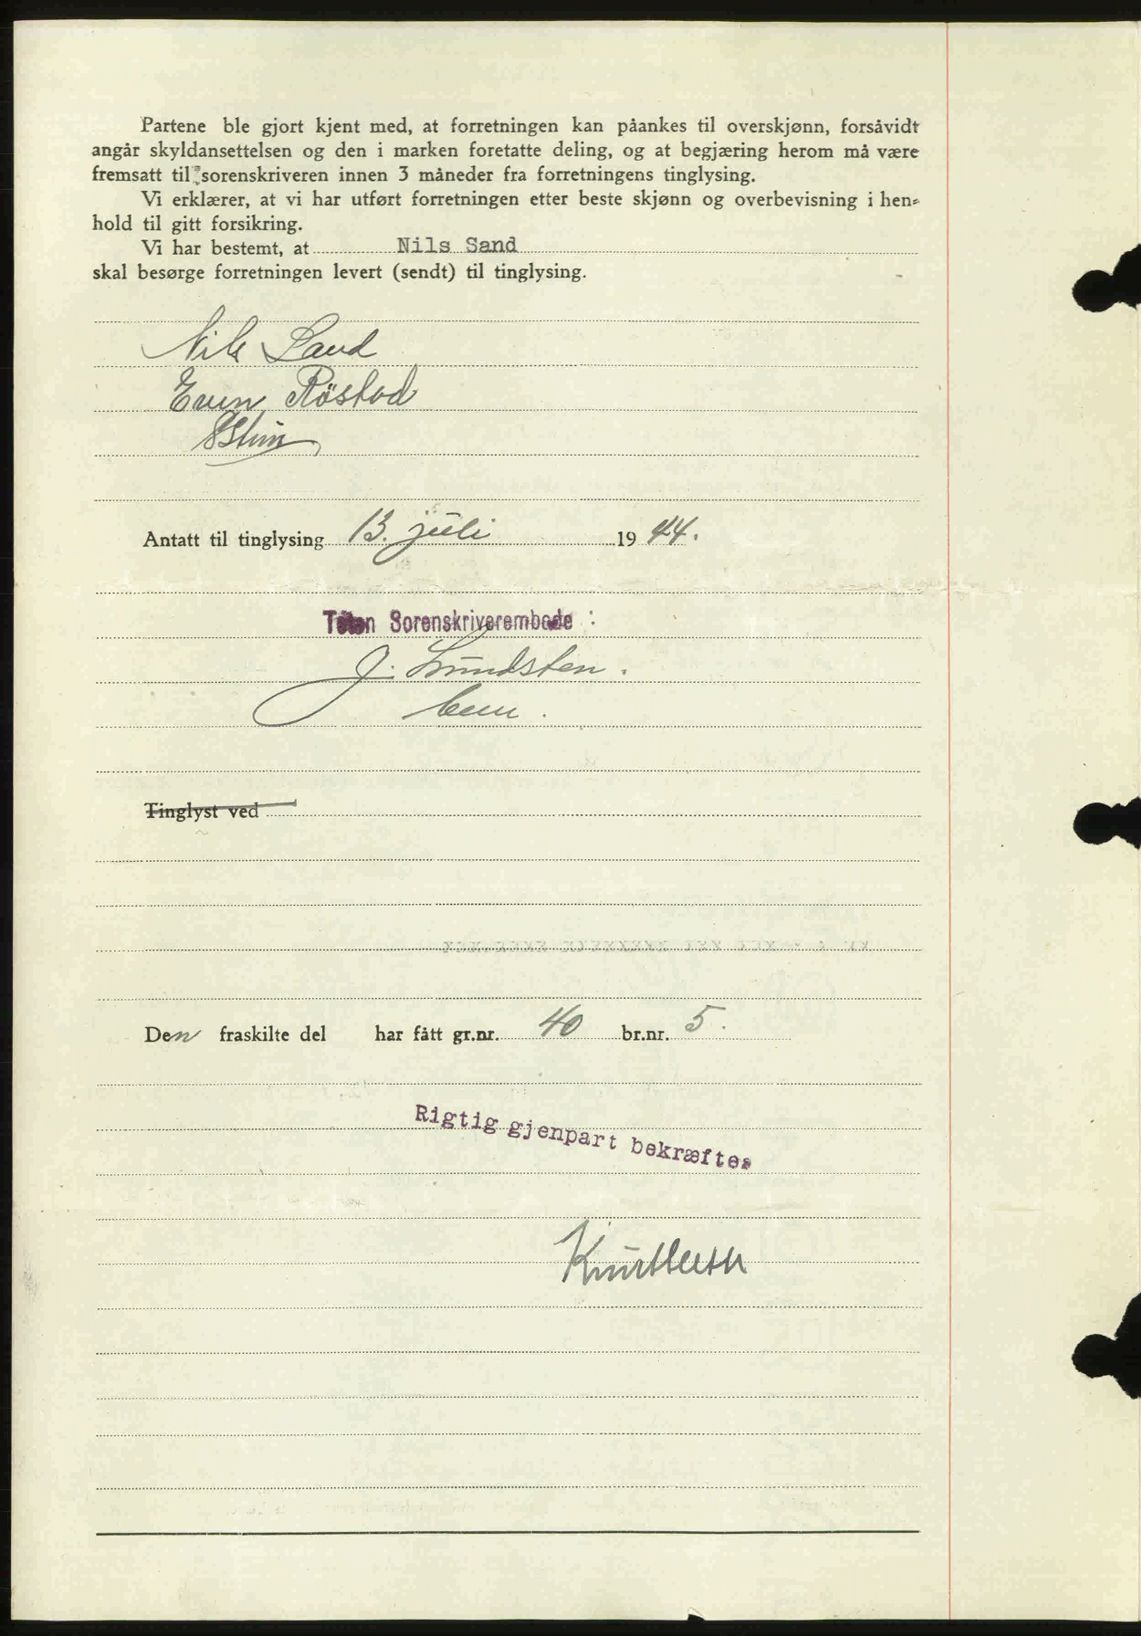 Partene ble gjort kjent med, at forretningen kan påankes til overskjønn, forsåvidt
angår skyldansettelsen og den i marken foretatte deling, og at begjæring herom må være
fremsatt til sorenskriveren innen 3 måneder fra forretningens tinglysing.
Vi erklærer, at vi har utført forretningen etter beste skjønn og overbevisning i hen-
hold til gitt forsikring.
Vi har bestemt, at Nils Sand
skal besørge forretningen levert (sendt) til tinglysing.
Nils Sand
Even Röstad
Antatt til tinglysing 13. juli 1944.
Toten Sorenskriverembede :
J. Lundsten.
Tinglyst ved
Den fraskilte del har fått gr.nr. 40 br.nr. 5.
Rigtig gjenpart bekræftes